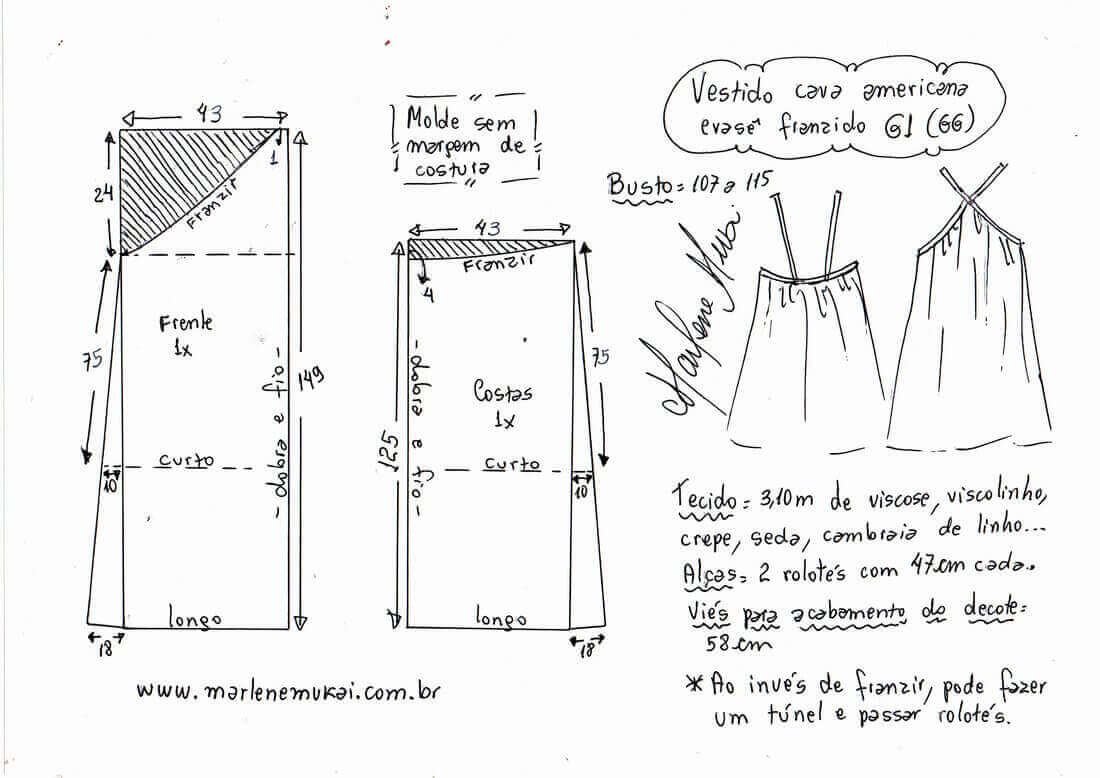 Vestido cava americana
evasê franzido G1 (GG)
Busto = 107 a 115
Molde sem
margem de
costura
43
24
1
Franzir
75
Frente
1x
- dobra e fio -
149
curto
10
longo
18
43
Franzir
4
75
Costas
1x
- dobra e fio -
125
curto
10
longo
18
Tecido = 3,10m de viscose, viscolinho,
crepe, seda, cambraia de linho...
Alças = 2 rolotés com 47cm cada.
Viés para acabamento do decote =
58cm
* Ao invés de franzir, pode fazer
um túnel e passar rolotés.
www.marlenemukai.com.br